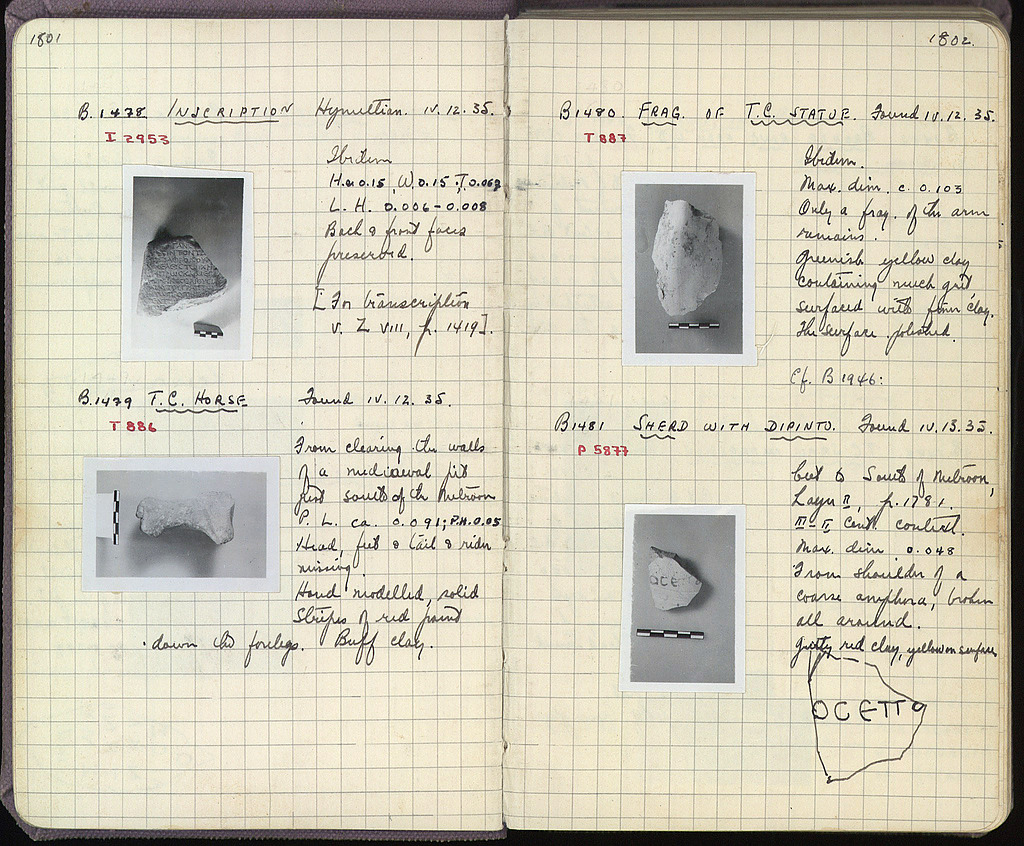 1801
B. 1478 INSCRIPTION Hymettian. IV. 12. 35.
I 2953
Ibidem
H. 0.15, W. 0.15, T. 0.062
L. H. 0.006-0.008
Back & front faces
preserved.
[For transcription
v. Z VIII, p. 1419].
B. 1479 T.C. HORSE Found IV. 12. 35.
T 886
From clearing the walls
of a mediaeval pit
just south of the Metroon
P. L. ca. 0.091; P.H. 0.05
Head, feet & tail & rider
missing.
Hand modelled, solid
Stripes of red paint
down the forelegs. Buff clay.
1802.
B 1480. FRAG. OF T.C. STATUE. Found IV. 12. 35.
T 887
Ibidem.
Max. dim. c. 0.103
Only a frag. of the arm
remains.
Greenish yellow clay
containing much grit
surfaced with finer clay.
The surface polished.
Cf. B 1946:
B 1481 SHERD WITH DIPINTO. Found IV. 13. 35.
P 5877
Cut to South of Metroon,
Layer II, p. 1781.
Cent. context.
Max. dim. 0.048
From shoulder of a
coarse amphora, broken
all around.
Gritty red clay, yellow on surface
OCETT